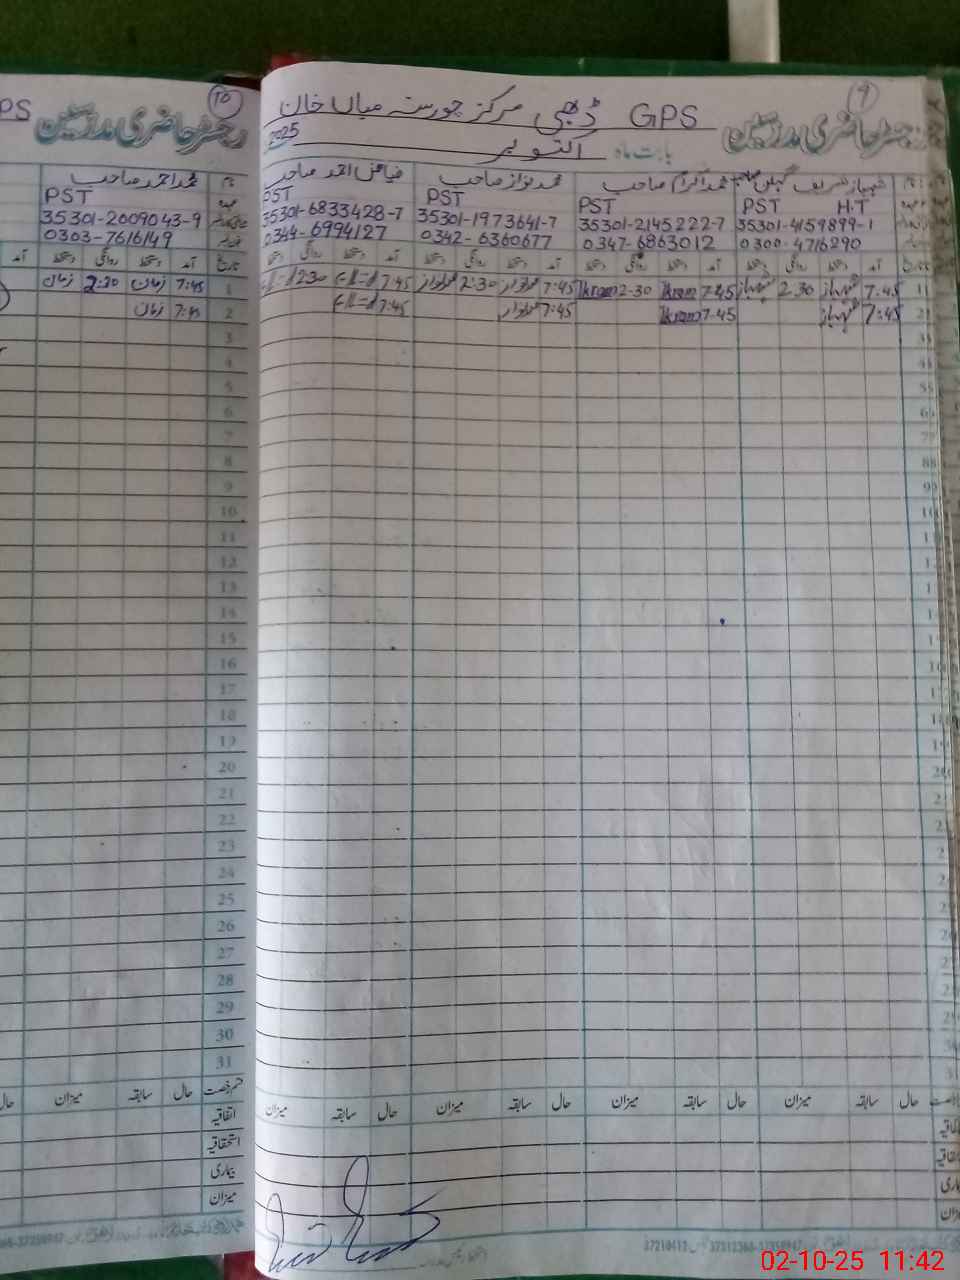 9
رجسٹر حاضری مدرسین
GPS ڈھبی مرکز چورستہ میاں خان
بابت ماہ اکتوبر 2025
نام شہباز شریف صاحب محمد اکرام صاحب محمد نواز صاحب فیاض احمد صاحب
عہدہ H.T PST PST PST PST
35301-4159899-1 35301-2145222-7 35301-1973641-7 35301-6833428-7
0300-4716290 0347-6863012 0342-6360677 0344-6994127
تاریخ آمد دستخط روانگی دستخط آمد دستخط روانگی دستخط آمد دستخط روانگی دستخط آمد دستخط روانگی دستخط
1 7:45 شہباز 2:30 شہباز 7:45 Ikram 2-30 Ikram 7:45 محمد نواز 2:30 محمد نواز 7:45 2:30
2 7:45 شہباز 7-45 Ikram 7:45 محمد نواز 7:45
حال سابقہ میزان حال سابقہ میزان حال سابقہ میزان حال سابقہ میزان
10
رجسٹر حاضری مدرسین
PS
نام محمد احمد صاحب
عہدہ PST
35301-2009043-9
0303-7616149
تاریخ آمد دستخط روانگی دستخط آمد
1 7:45 زمان 2:30 زمان
2 7:45 زمان
3
4
5
6
7
8
9
10
11
12
13
14
15
16
17
18
19
20
21
22
23
24
25
26
27
28
29
30
31
قسم رخصت حال سابقہ میزان حال
اتفاقیہ
استحقاقیہ
بیماری
میزان
02-10-25 11:42